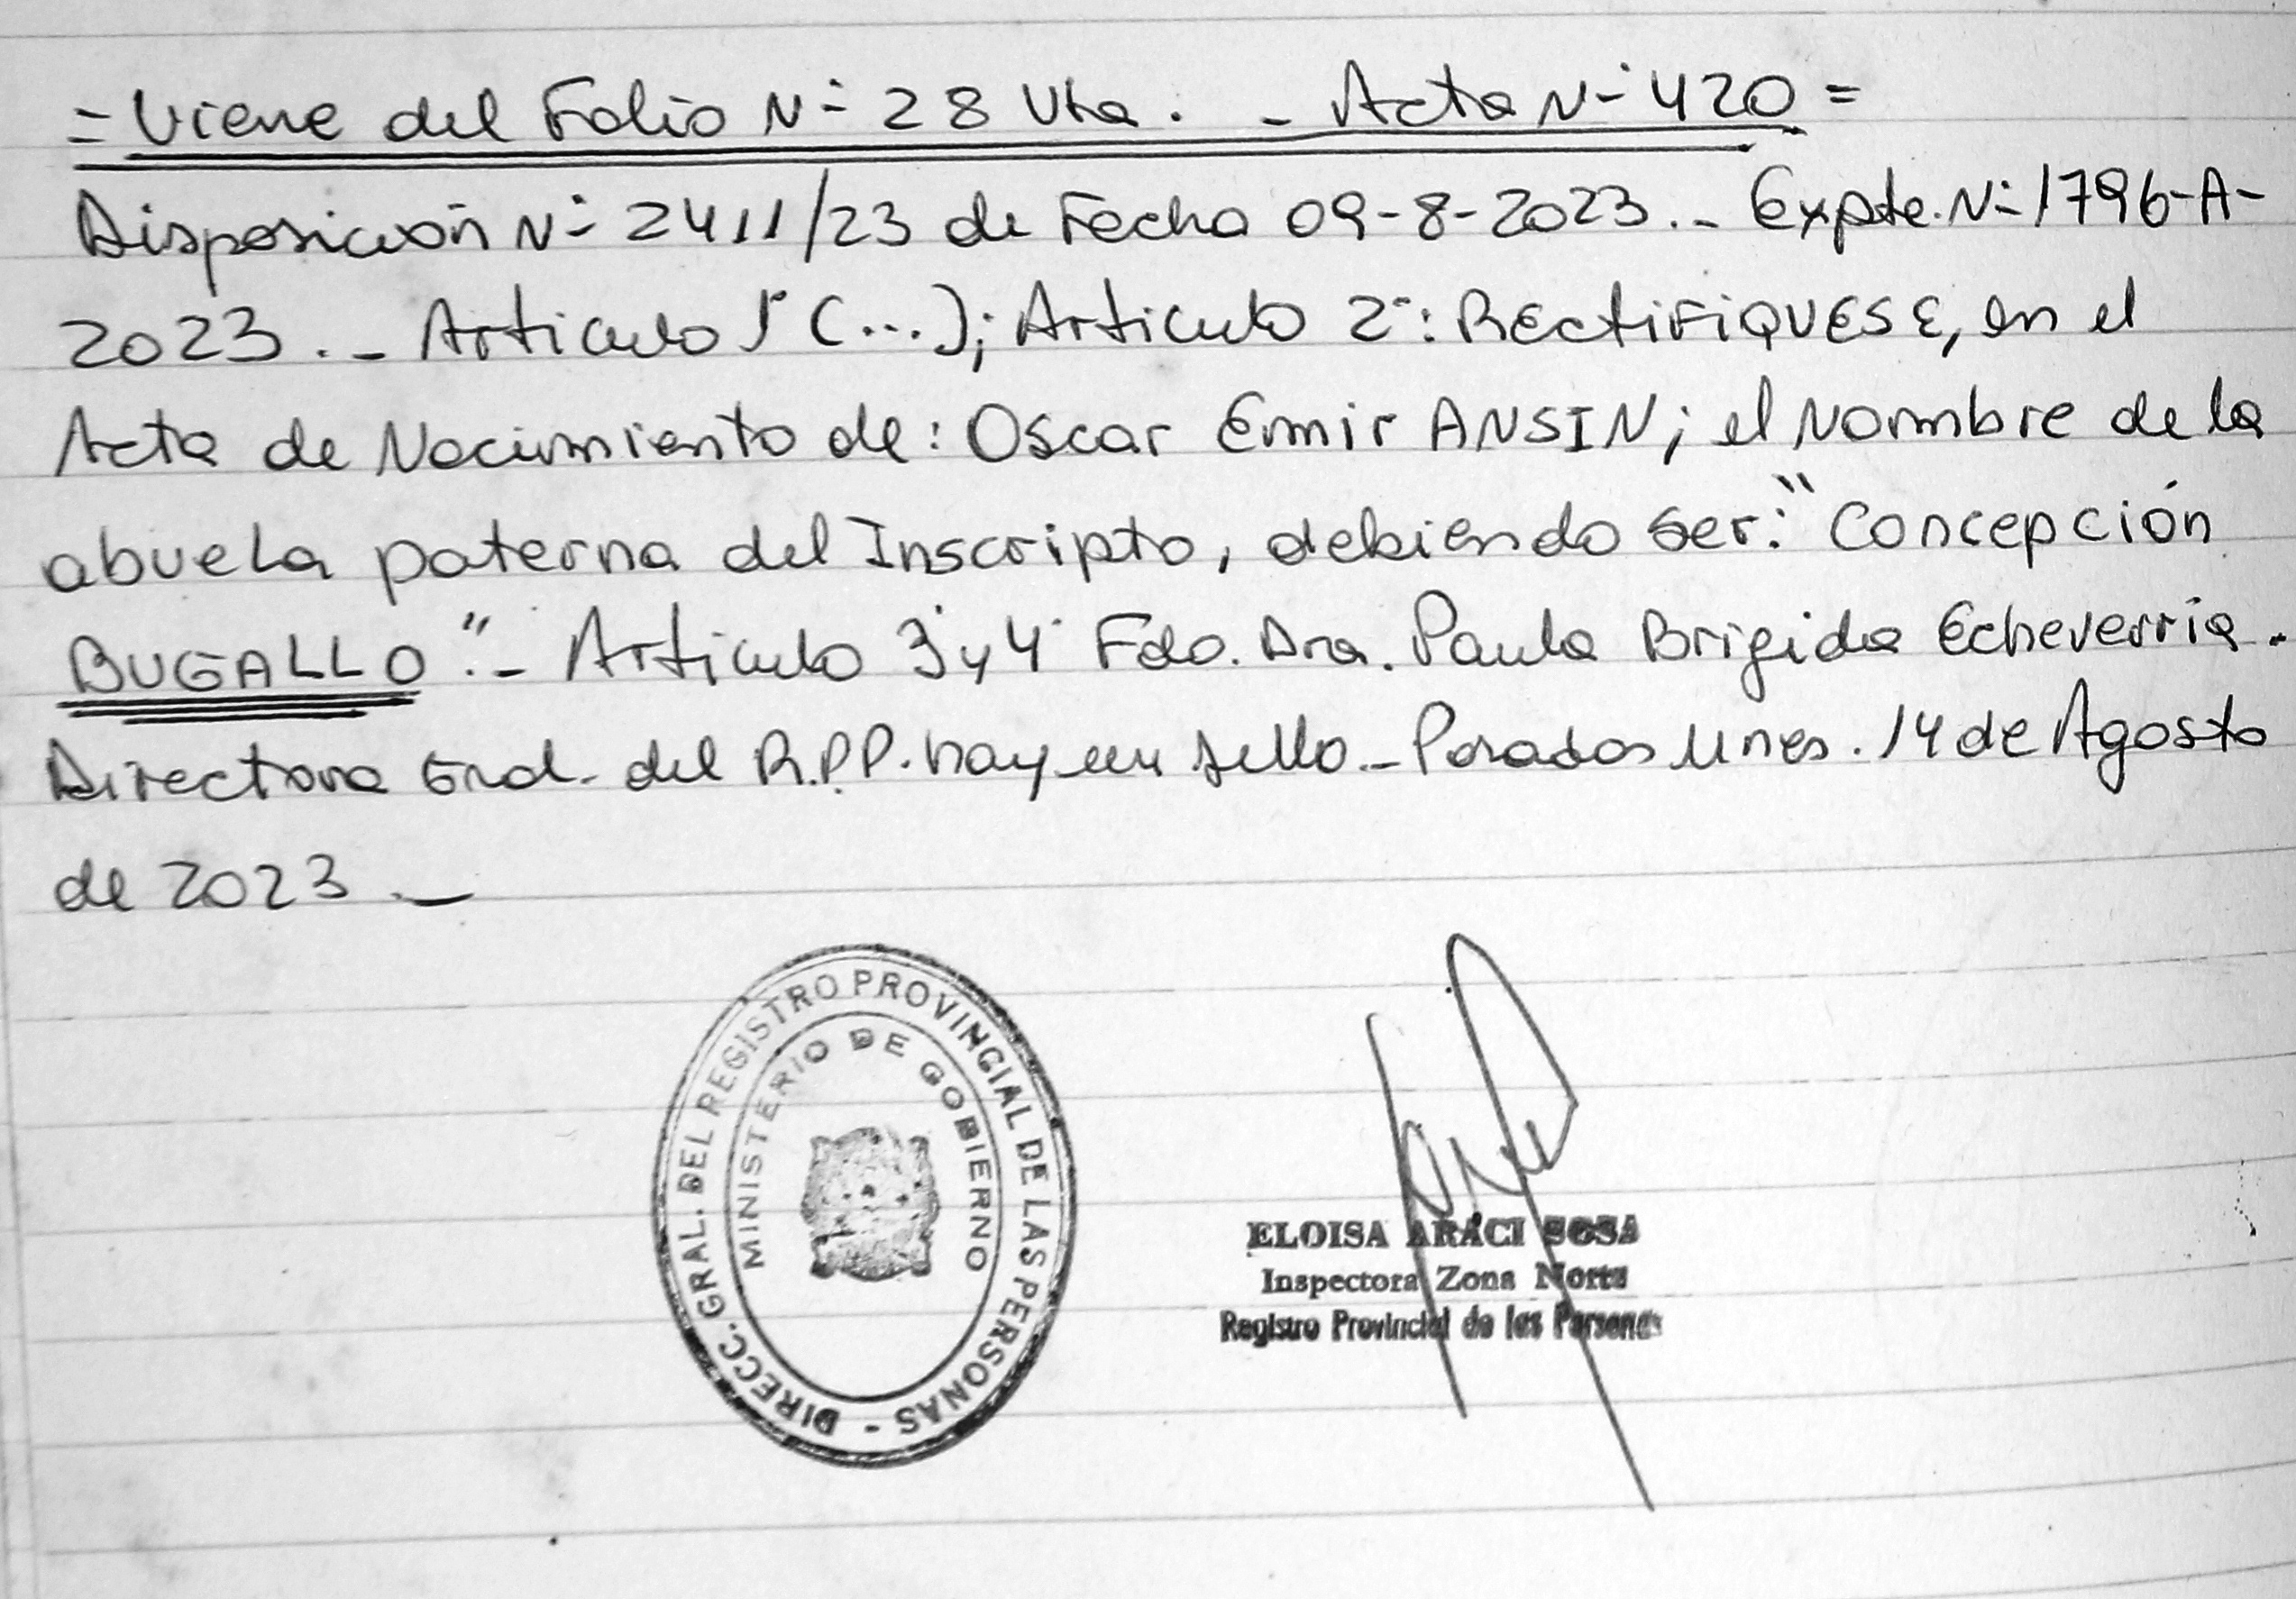 = Viene del Folio N- 28 Vta. - Acta N- 420 =
Disposición N- 2411/23 de Fecha 09-8-2023.- Expte. N- 1796-A-
2023.- Articulo 1° (...); Articulo 2°: RECtiFiQUESE, en el
Acta de Nacimiento de: Oscar Emir ANSIN; el Nombre de la
abuela paterna del Inscripto, debiendo ser: "Concepción
BUGALLO".- Articulo 3° y 4° Fdo. Dra. Paula Brigida Echeverria.
Directora Gral. del R.P.P. hay un sello.- Posadas Mnes. 14 de Agosto
de 2023.-
DIRECC. GRAL. DEL REGISTRO PROVINCIAL DE LAS PERSONAS -
MINISTERIO DE GOBIERNO
ELOISA ARACI SOSA
Inspectora Zona Norte
Registro Provincial de las Personas